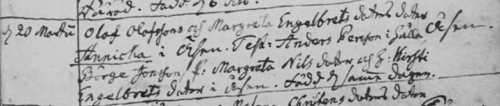 Häröd. Född
d 20 Martii Olof Olofssons och Margreta Engelbrets daters dater
Annicka i Åsen. Test: Anders Persson i Åsen.
Börge Jonson, P: Margreta Nils dater, och P: Kirsti
Engelbrets dater i Åsen. Född d samma dagen.
Christens daters dater